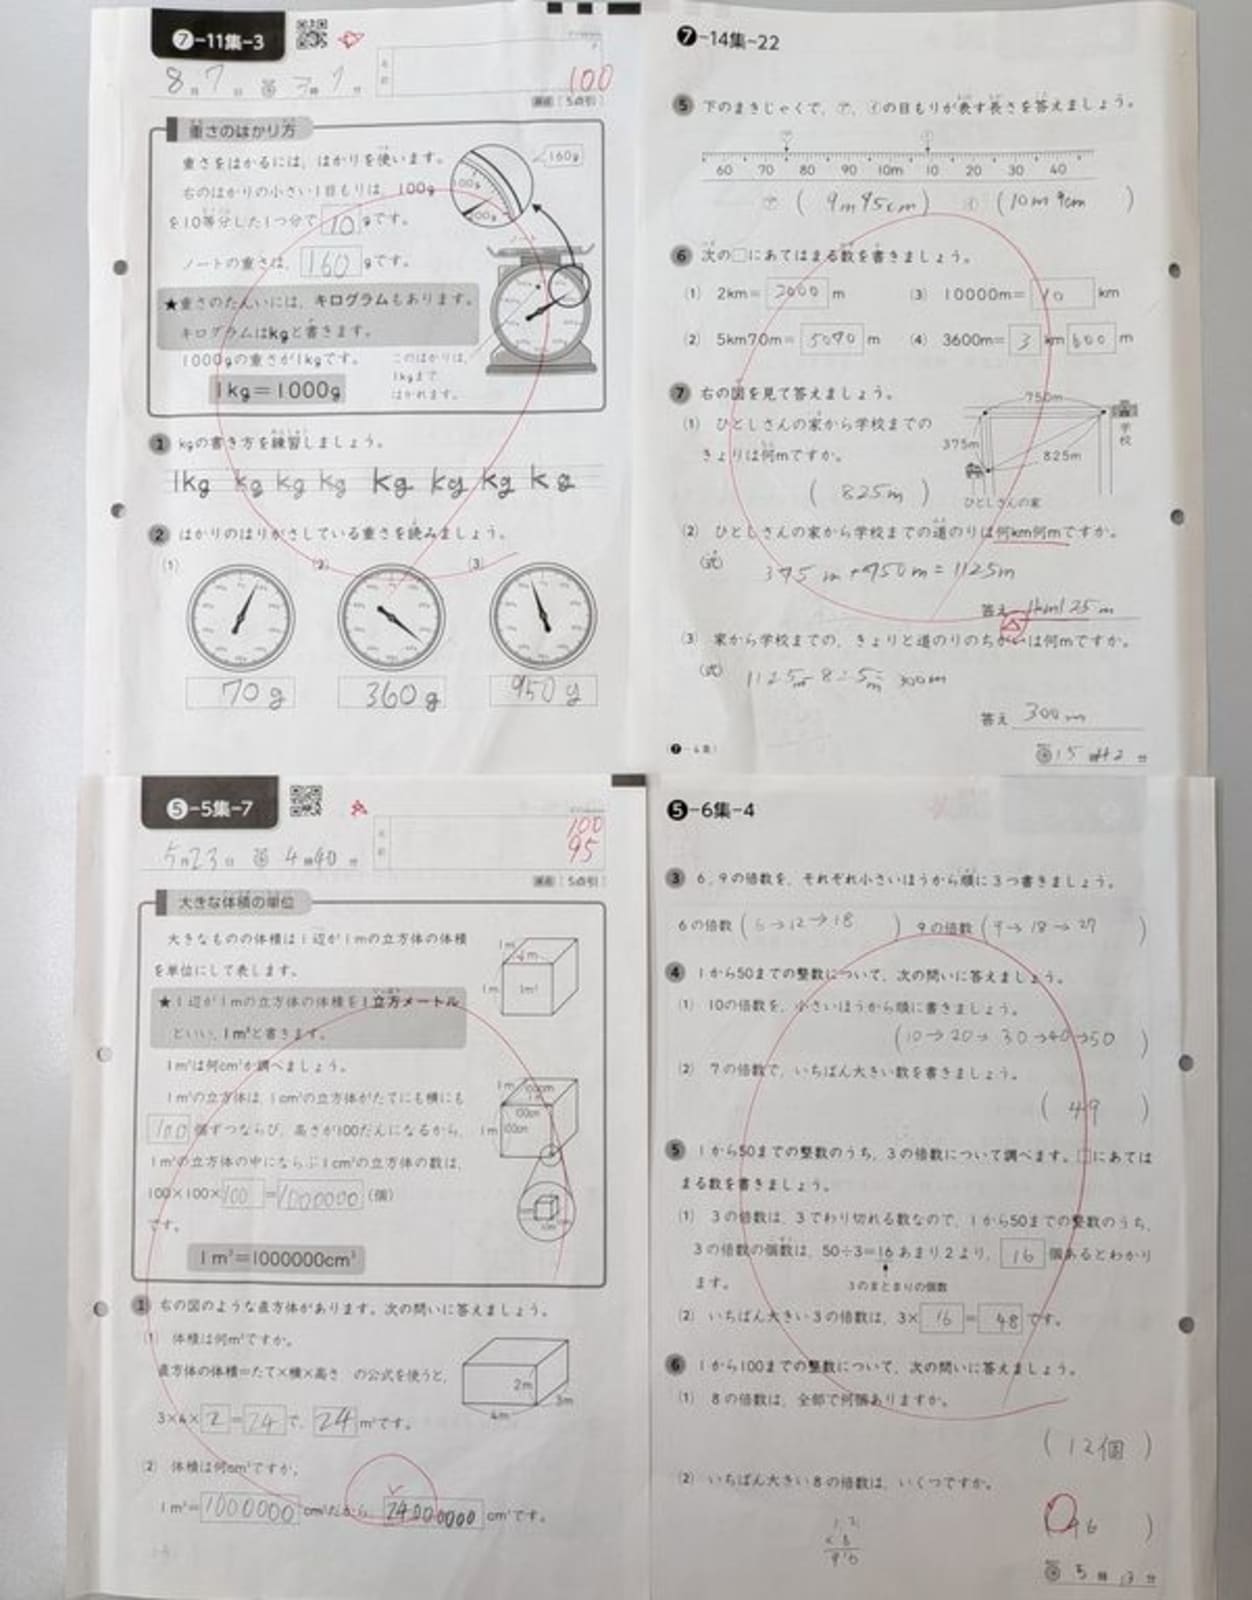 7-11集-3
8月7日
100
5点引
重さのはかり方
重さをはかるには、はかりを使います。
右のはかりの小さい1目もりは、100g
を10等分した1つ分で 10 gです。
160g
ノートの重さは、160 gです。
ノート
★重さのたんいには、キログラムもあります。
キログラムはkgと書きます。
1000gの重さが1kgです。
1kg=1000g
このはかりは、
1kgまで
はかれます。
1 kgの書き方を練習しましょう。
1kg kg kg kg kg kg kg kg
2 はかりのはりがさしている重さを読みましょう。
(1) (2) (3)
70g 360g 950g
7-14集-22
5 下のまきじゃくで、㋐、㋑の目もりが表す長さを答えましょう。
60 70 80 90 10m 10 20 30 40
㋐ ( 9m75cm ) ㋑ ( 10m9cm )
6 次の□にあてはまる数を書きましょう。
(1) 2km= 2000 m (3) 10000m= 10 km
(2) 5km70m= 5070 m (4) 3600m= 3 km 600 m
7 右の図を見て答えましょう。
(1) ひとしさんの家から学校までの
きょりは何mですか。
( 825m )
750m
学校
375m
825m
ひとしさんの家
(2) ひとしさんの家から学校までの道のりは何km何mですか。
(式) 375m+750m=1125m
答え 1km125m
(3) 家から学校までの、きょりと道のりのちがいは何mですか。
(式) 1125m-825m= 300m
答え 300m
5-5集-7
5月23日 4時40分
100
95
5点引
大きな体積の単位
大きなものの体積は1辺が1mの立方体の体積
を単位にして表します。
★1辺が1mの立方体の体積を1立方メートル
といい、1m³と書きます。
1m 1m 1m 1m³
1m³は何cm³か調べましょう。
1m³の立方体は、1cm³の立方体がたてにも横にも
100 個ずつならび、高さが100だんになるから、
1m³の立方体の中にならぶ1cm³の立方体の数は、
100×100× 100 = 1000000 (個)
です。
1m 100cm
100cm
1m 100cm
1m³=1000000cm³
1 右の図のような直方体があります。次の問いに答えましょう。
(1) 体積は何m³ですか。
直方体の体積=たて×横×高さ の公式を使うと、
3×4× 2 = 24 で、24 m³です。
2m
3m
4m
(2) 体積は何cm³ですか。
1m³= 1000000 cm³だから、24000000 cm³です。
5-6集-4
3 6、9の倍数を、それぞれ小さいほうから順に3つ書きましょう。
6の倍数 ( 6→12→18 ) 9の倍数 ( 9→18→27 )
4 1から50までの整数について、次の問いに答えましょう。
(1) 10の倍数を、小さいほうから順に書きましょう。
( 10→20→30→40→50 )
(2) 7の倍数で、いちばん大きい数を書きましょう。
( 49 )
5 1から50までの整数のうち、3の倍数について調べます。□にあては
まる数を書きましょう。
(1) 3の倍数は、3でわり切れる数なので、1から50までの整数のうち、
3の倍数の個数は、50÷3=16あまり2より、16 個あるとわかり
ます。
3のまとまりの個数
(2) いちばん大きい3の倍数は、3× 16 = 48 です。
6 1から100までの整数について、次の問いに答えましょう。
(1) 8の倍数は、全部で何個ありますか。
( 12個 )
(2) いちばん大きい8の倍数は、いくつですか。
( 96 )
5時13分